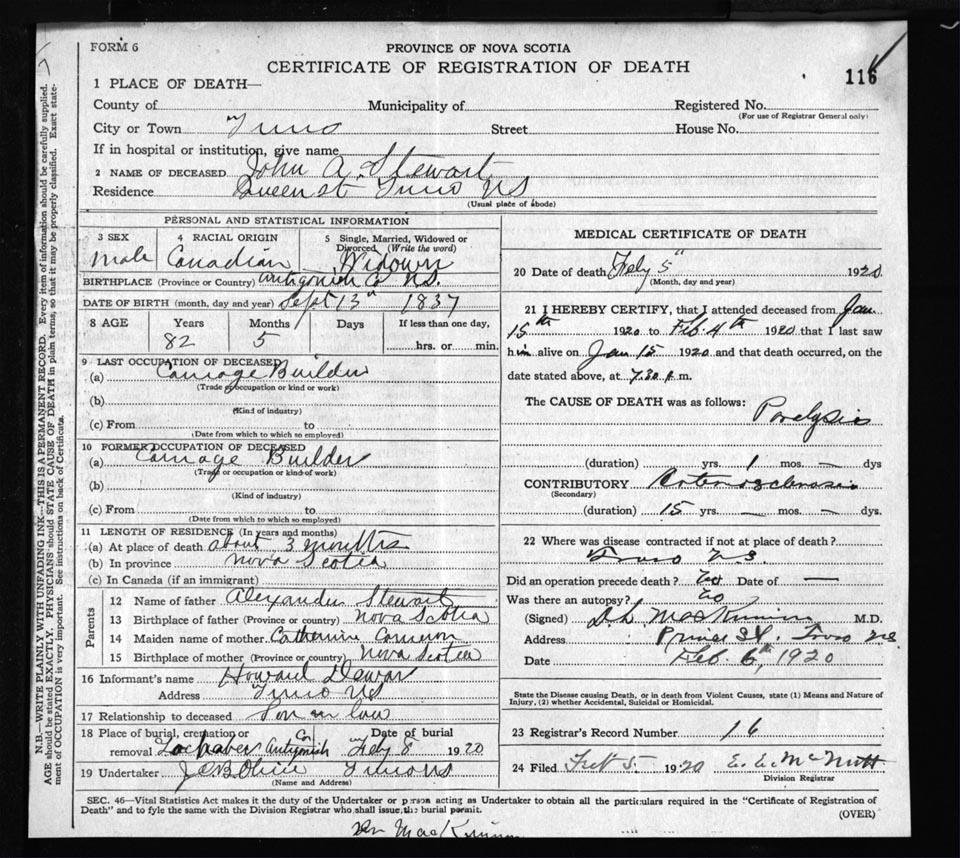 FORM 6
PROVINCE OF NOVA SCOTIA
CERTIFICATE OF REGISTRATION OF DEATH
116
1 PLACE OF DEATH—
County of Municipality of Registered No.
(For use of Registrar General only)
City or Town Truro Street House No.
If in hospital or institution, give name
2 NAME OF DECEASED John A. Stewart
Residence Queen st Truro NS
(Usual place of abode)
PERSONAL AND STATISTICAL INFORMATION
3 SEX male
4 RACIAL ORIGIN Canadian
5 Single, Married, Widowed or Divorced (Write the word)
BIRTHPLACE (Province or Country) Antigonish Co NS.
DATE OF BIRTH (month, day and year) Sept 13th 1837
8 AGE Years Months Days If less than one day,
82 5 hrs. or min.
9 LAST OCCUPATION OF DECEASED
(a) Carriage Builder
(Trade or occupation or kind of work)
(b)
(Kind of industry)
(c) From to
(Date from which to which so employed)
10 FORMER OCCUPATION OF DECEASED
(a) Carriage Builder
(Trade or occupation or kind of work)
(b)
(Kind of industry)
(c) From to
(Date from which to which so employed)
11 LENGTH OF RESIDENCE (In years and months)
(a) At place of death about 3 months
(b) In province Nova Scotia
(c) In Canada (if an immigrant)
Parents
12 Name of father Alexander Stewart
13 Birthplace of father (Province or country) Nova Scotia
14 Maiden name of mother Catherine Cameron
15 Birthplace of mother (Province or country) Nova Scotia
16 Informant's name Howard Dewar
Address Truro NS
17 Relationship to deceased Son in law
18 Place of burial, cremation or removal Lochaber Antigonish Co Date of burial Feby 8 1920
19 Undertaker Truro NS
(Name and Address)
MEDICAL CERTIFICATE OF DEATH
20 Date of death Feby 5th 1920
(Month, day and year)
21 I HEREBY CERTIFY, that I attended deceased from Jan
15th 1920 to Feb. 4th 1920 that I last saw
him alive on Jan 15 1920 and that death occurred, on the
date stated above, at 7.30 m.
The CAUSE OF DEATH was as follows:
Paralysis
(duration) yrs. 1 mos. — dys
CONTRIBUTORY Arteriosclerosis
(Secondary)
(duration) 15 yrs. — mos. — dys.
22 Where was disease contracted if not at place of death?
Truro N.S.
Did an operation precede death? No Date of —
Was there an autopsy? No
(Signed) MacKinnon M.D.
Address Prince St. Truro NS
Date Feb. 6th, 1920
State the Disease causing Death, or in death from Violent Causes, state (1) Means and Nature of
Injury, (2) whether Accidental, Suicidal or Homicidal.
23 Registrar's Record Number 16
24 Filed 5 1920 McNutt
Division Registrar
SEC. 46—Vital Statistics Act makes it the duty of the Undertaker or person acting as Undertaker to obtain all the particulars required in the "Certificate of Registration of
Death" and to fyle the same with the Division Registrar who shall issue the burial permit. (OVER)
Dr MacKinnon
N.B.—WRITE PLAINLY WITH UNFADING INK—THIS IS A PERMANENT RECORD. Every item of information should be carefully supplied.
AGE should be stated EXACTLY. PHYSICIANS should STATE CAUSE OF DEATH in plain terms, so that it may be properly classified. Exact state-
ment of OCCUPATION is very important. See instructions on back of Certificate.